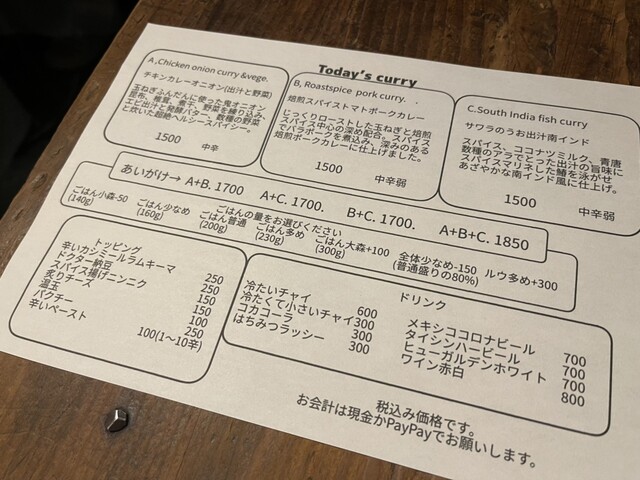 Today's curry
A,Chicken onion curry &vege.
チキンカレーオニオン(出汁と野菜)
玉ねぎふんだんに使った鬼オニオン
昆布、椎茸、煮干、野菜を練り込み、
エビ出汁と発酵バター、数種の野菜
と炊いた超絶ヘルシースパイシー。
1500 中辛
B, Roastspice pork curry. .
焙煎スパイストマトポークカレー
じっくりローストした玉ねぎと焙煎
スパイス中心の深め配合。スパイス
でバラポークを煮込み、深みのある
焙煎ポークカレーに仕上げました。
1500 中辛弱
C.South India fish curry
サワラのうお出汁南インド
スパイス、ココナツミルク、青唐
数種のアラでとった出汁の旨味に
スパイスマリネした鰆を泳がせ
あざやかな南インド風に仕上げ。
1500 中辛弱
あいがけ→ A+B. 1700 A+C. 1700. B+C. 1700. A+B+C. 1850
ごはんの量をお選びください
ごはん小森-50 ごはん少なめ ごはん普通 ごはん多め ごはん大森+100 全体少なめ-150 ルウ多め+300
(140g) (160g) (200g) (230g) (300g) (普通盛りの80%)
トッピング
辛いカシミールラムキーマ 250
ドクター納豆 250
スパイス揚げニンニク 150
炙りチーズ 150
温玉 100
パクチー 250
辛いペースト 100(1〜10辛)
ドリンク
冷たいチャイ 600
冷たくて小さいチャイ300
コカコーラ 300
はちみつラッシー 300
メキシココロナビール 700
タイシンハービール 700
ヒューガルデンホワイト 700
ワイン赤白 800
税込み価格です。
お会計は現金かPayPayでお願いします。